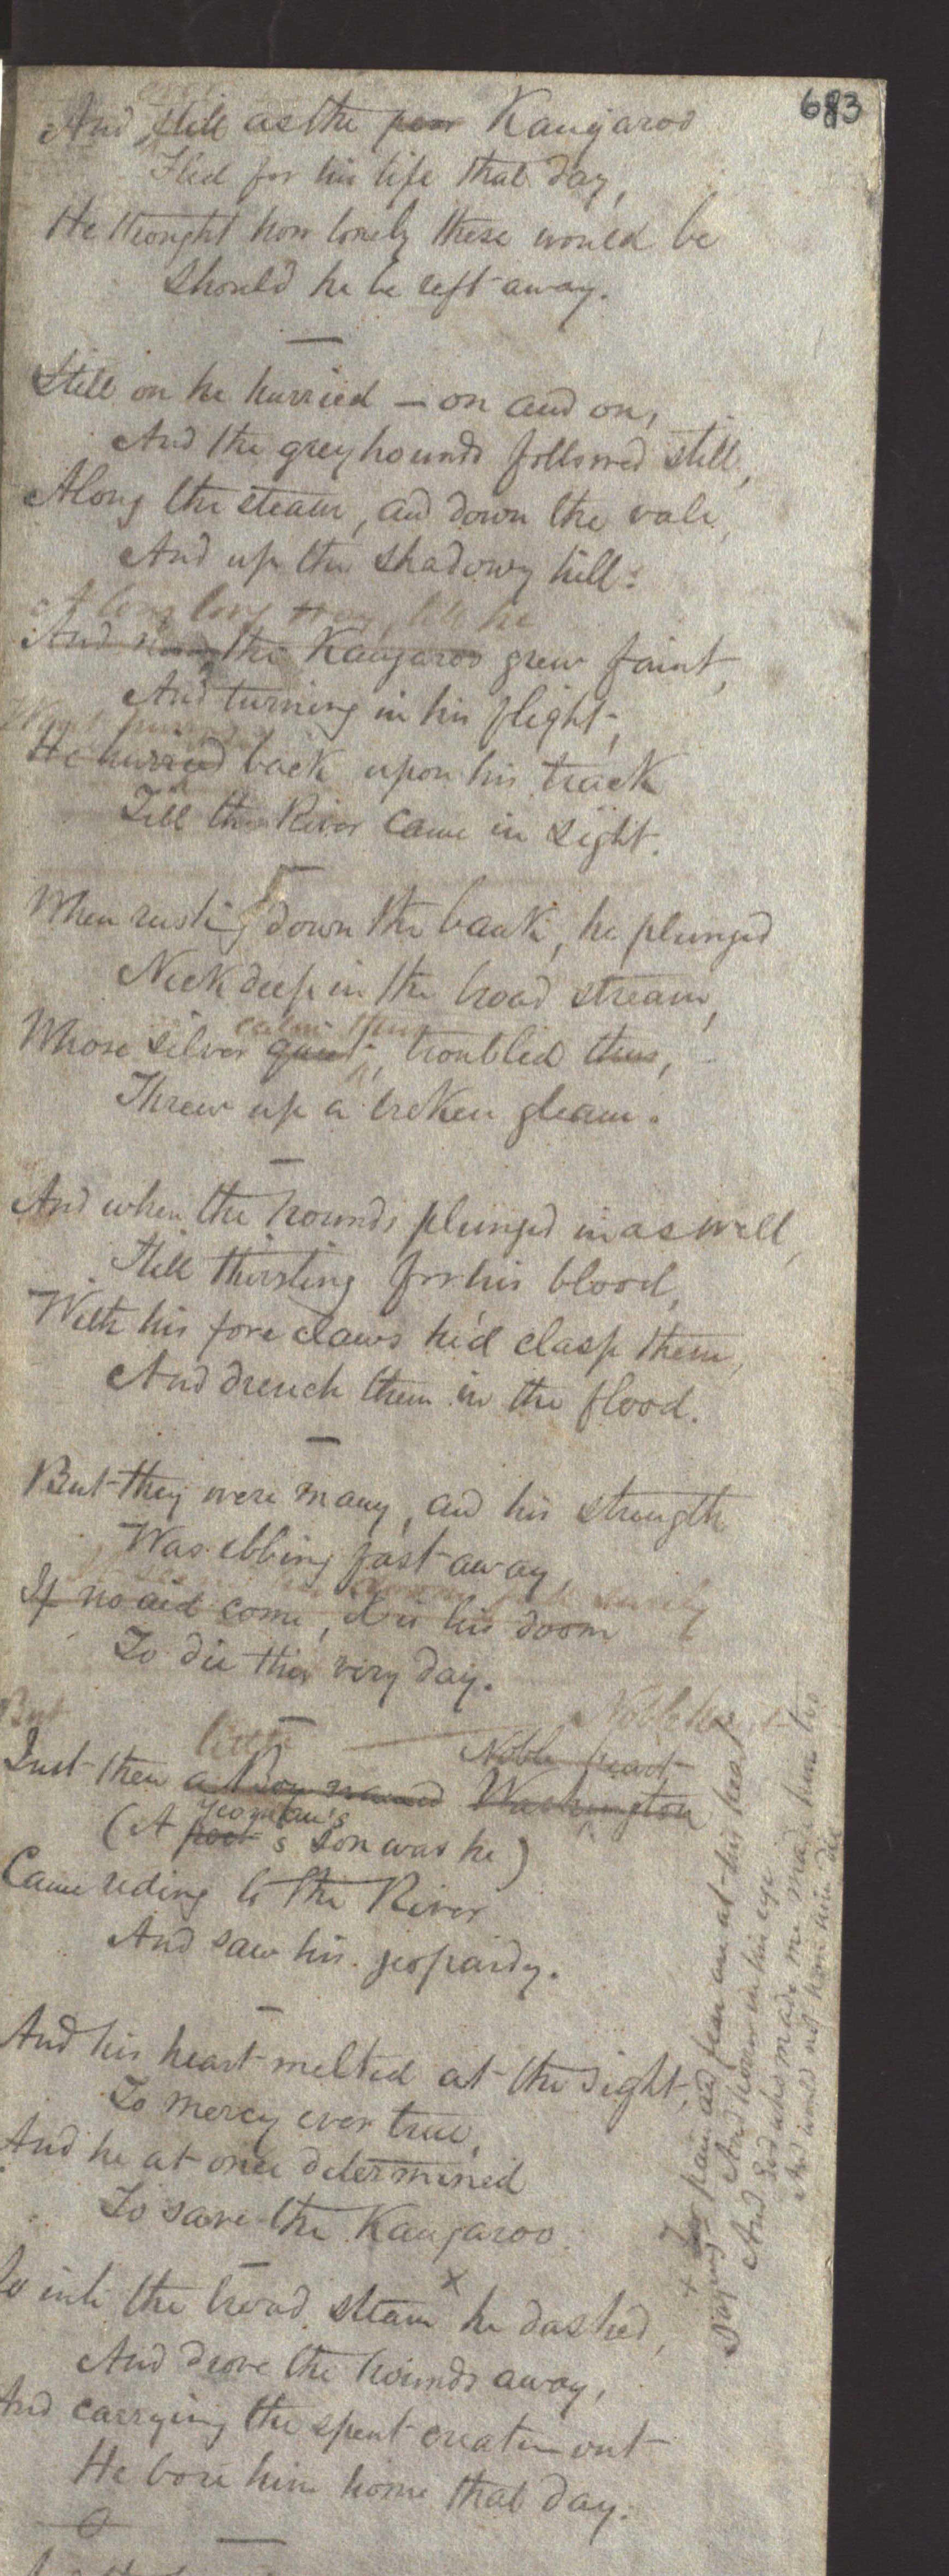 683
And still as the poor Kangaroo
Fled for his life that day,
He thought how lonely these would be
Should he be reft away.
Still on he hurried — on and on,
And the greyhounds followed still,
Along the steam, and down the vale,
And up the shadowy hill:
A long long way, till he
And now the Kangaroo grew faint,
And turning in his flight,
He hurried back upon his track
Till the River came in sight.
When rushing down the bank, he plunged
Neck deep in the broad stream,
calm then
Whose silver quiet, troubled thus,
Threw up a broken gleam.
And when the hounds plunged in as well,
Still thirsting for his blood,
With his fore claws he'd clasp them,
And drench them in the flood.
But they were many, and his strength
Was ebbing fast away,
If no aid come, it is his doom
To die this very day.
But
little Noble heart
Noble heart
Just then a Boy named Washington
yeoman's
(A poet's son was he)
Came riding to the River
And saw his jeopardy.
And his heart melted at the sight,
To mercy ever true,
And he at once determined
To save the Kangaroo.
So into the broad steam x he dashed,
And drove the hounds away,
And carrying the spent creature out
He bore him home that day.
x For pain and fear are at his heart
And horror in his eye
Saying And God who made me made him too
And would not have him die